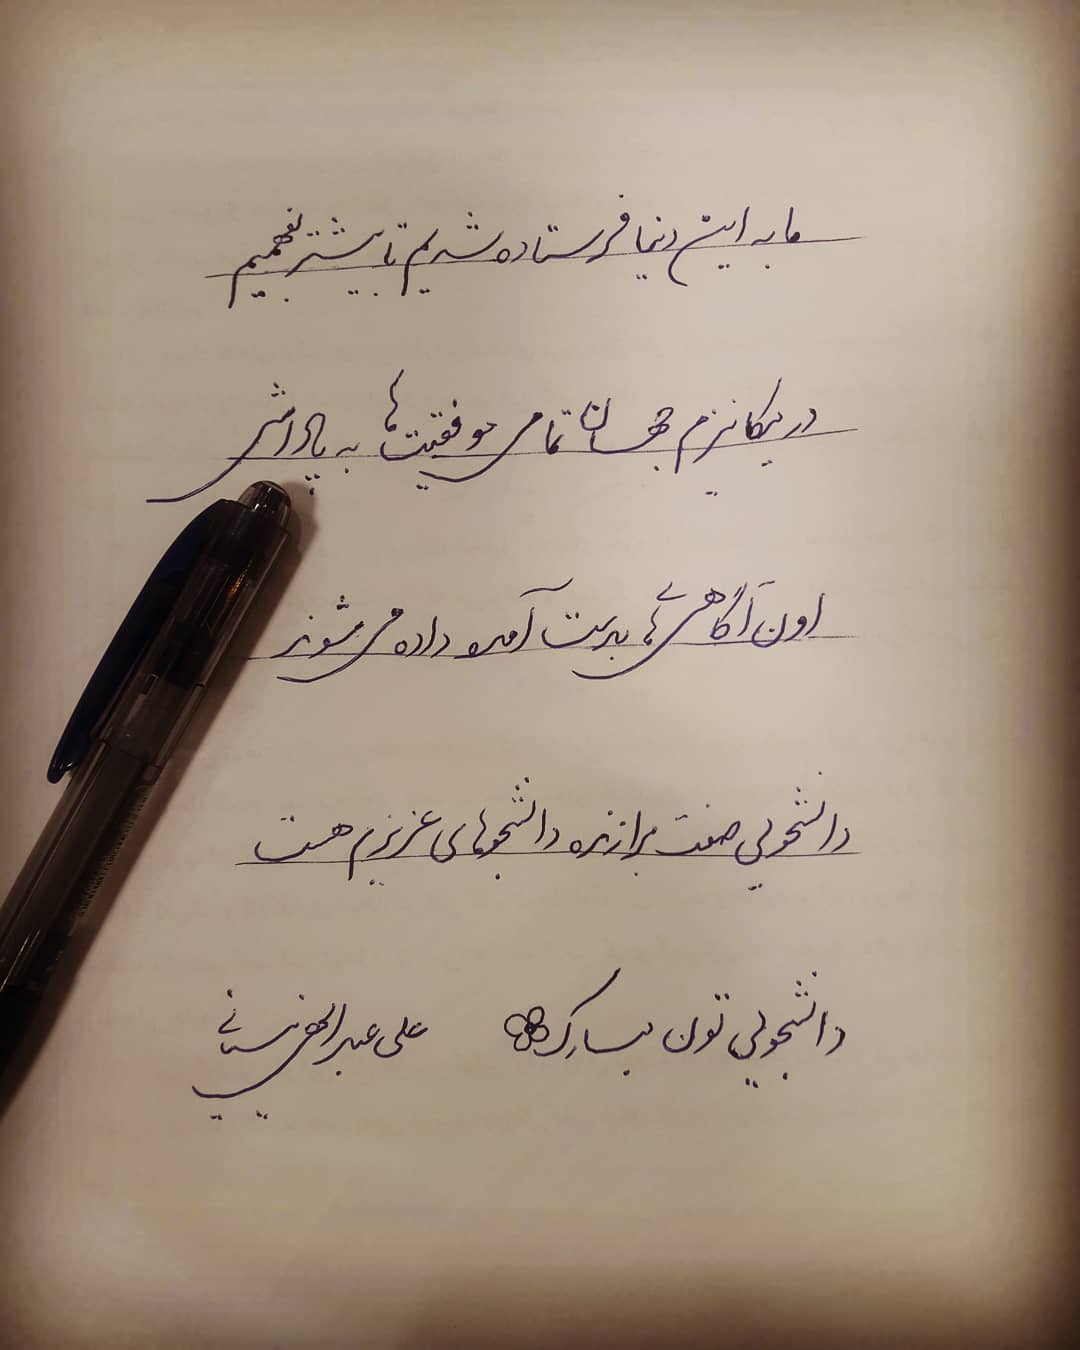 ما به این دنیا فرستاده شدیم تا بیشتر بفهمیم
در میکانیزم جهان تمامی موفقیت ها به پاداش
اون آگاهی های بدست آمده داده می شوند
دانشجویی صفت برازنده دانشجوهای عزیزم هست
دانشجویی تون مبارک علی عبدالهی